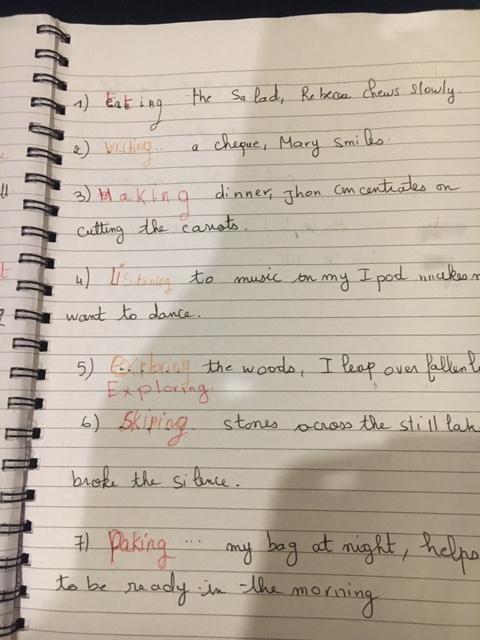 1) Eating the Salad, Rebecca chews slowly.
2) Writing... a cheque, Mary smiles.
3) Making dinner, Jhon concentrates on
cutting the carrots.
4) Listening to music on my Ipod makes
want to dance.
5) Exploring the woods, I leap over fallen
Exploring.
6) Skiping stones across the still lak
broke the silence.
7) Paking ... my bag at night, helps
to be ready in the morning